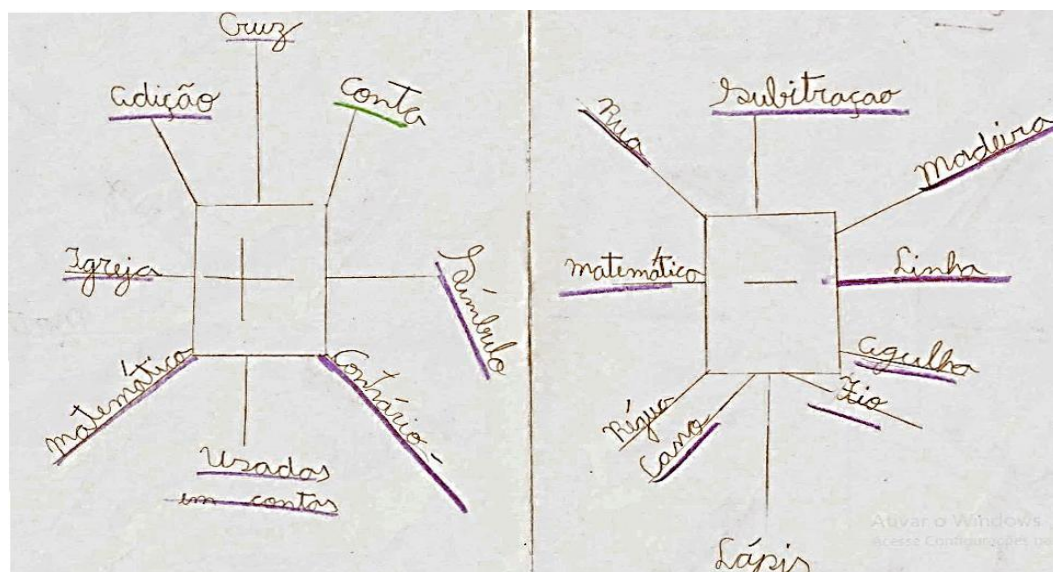 Cruz
Adição
Conta
Igreja
+
Símbulo
Matemática
Contrário
Usadas
em contas
Rua
Subitraçao
Madeira
Matemática
-
Linha
Agulha
Fio
Régua
Cano
Lápis
Ativar o Windows